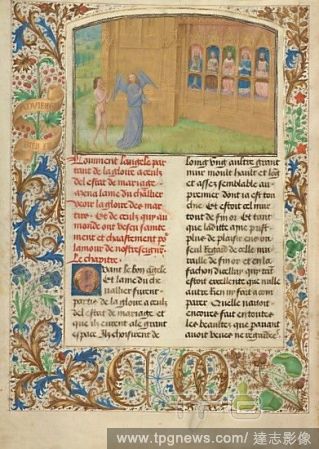 Comment langele par
tant de la gloire a ceulx
del estat de mariage .
mena lame du chlier
veoir la gloire des mar
tirs . Et de ceulx qui au
monde ont vescu sainte
ment et chastement po
lamour de nostre seign
Le chapitre .
Quant le bon angele
Et lame du che
vallier furent
partis de la gloire a ceulx
del estat de mariage et
que ilz eurent ale grant
espace Ilz choisirent de
loing ung aultre grant
mur moult hault et long
et assez semblable au
premier dont ia est tou
che . Et estoit cel mur
tout de fin or Et tant
que laditte ame prist
plus de plaisir en ce
seul regard de celle mu
raille de fin or et en la
fachon dicellui qui tant
estoit excellente que nulle
autre rien ny fait a com
parer . Quelle navoit
encores fait en toutes
les beaultez que par auant
auoit veues ne
www.tpgnews.com/ 達志影像